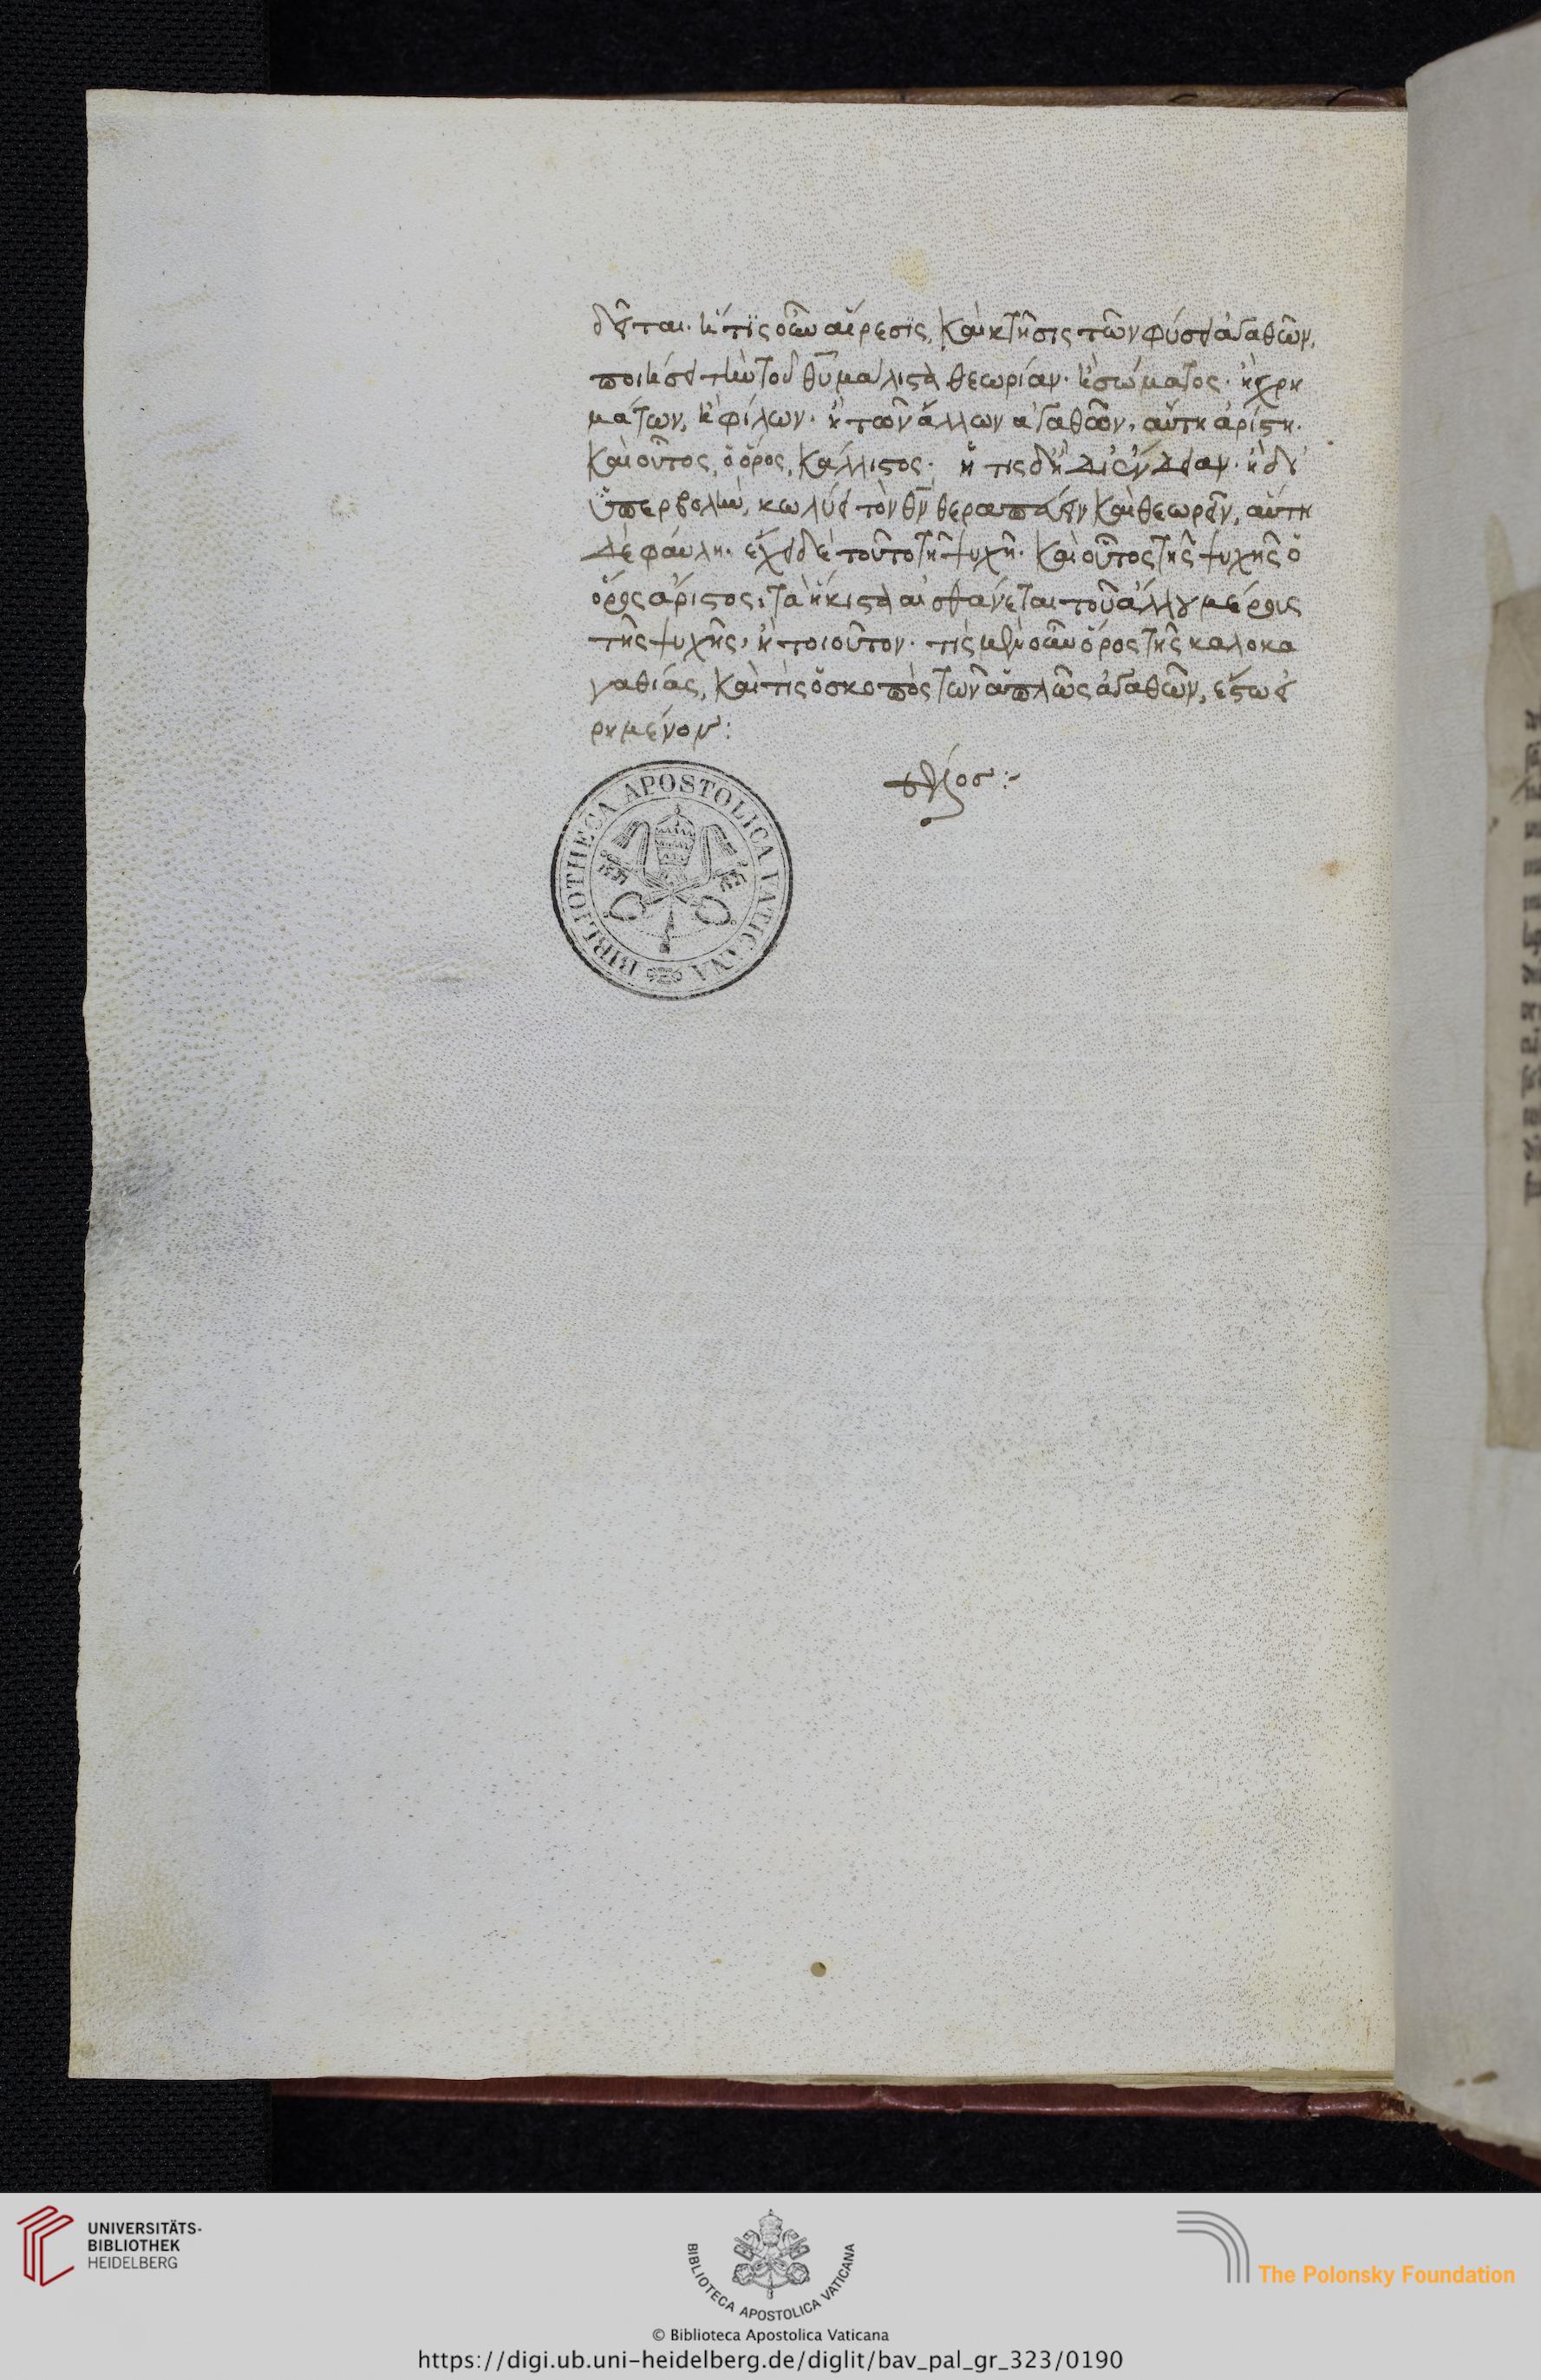 δεῖται. ἥτις οὖν αἵρεσις, καὶ κτῆσις τῶν φύσει ἀγαθῶν,
ποιήσει τὴν τοῦ θ̅υ̅ μάλιστα θεωρίαν. ἢ σώματος. ἢ χρη
μάτων, ἢ φίλων. ἢ τῶν ἄλλων ἀγαθῶν, αὕτη ἀρίστη.
καὶ οὗτος, ὁ ὅρος, κάλλιστος. ἥ τις δὴ δι' ἔνδειαν. ἢ δι'
ὑπερβολὴν, κωλύει τὸν θ̅ν̅ θεραπεύειν καὶ θεωρεῖν, αὕτη
δὲ φαύλη. ἔχει δὲ τοῦτο τῆ ψυχῆ. καὶ οὗτος τῆς ψυχῆς ὁ
ὅρος ἄριστος, τὰ ἥκιστα αἰσθάνεται τοῦ ἄλλου μέρους
τῆς ψυχῆς, ἢ τοιοῦτον. τίς μὲν οὖν ὅρος τῆς καλοκα
γαθίας, καὶ τίς ὁ σκοπὸς τῶν ἁπλῶς ἀγαθῶν, ἔστω εἰ
ρημένον:
τέλος:-
BIBLIOTHECA APOSTOLICA VATICANA
UNIVERSITÄTS-
BIBLIOTHEK
HEIDELBERG
BIBLIOTECA APOSTOLICA VATICANA
The Polonsky Foundation
© Biblioteca Apostolica Vaticana
https://digi.ub.uni-heidelberg.de/diglit/bav_pal_gr_323/0190